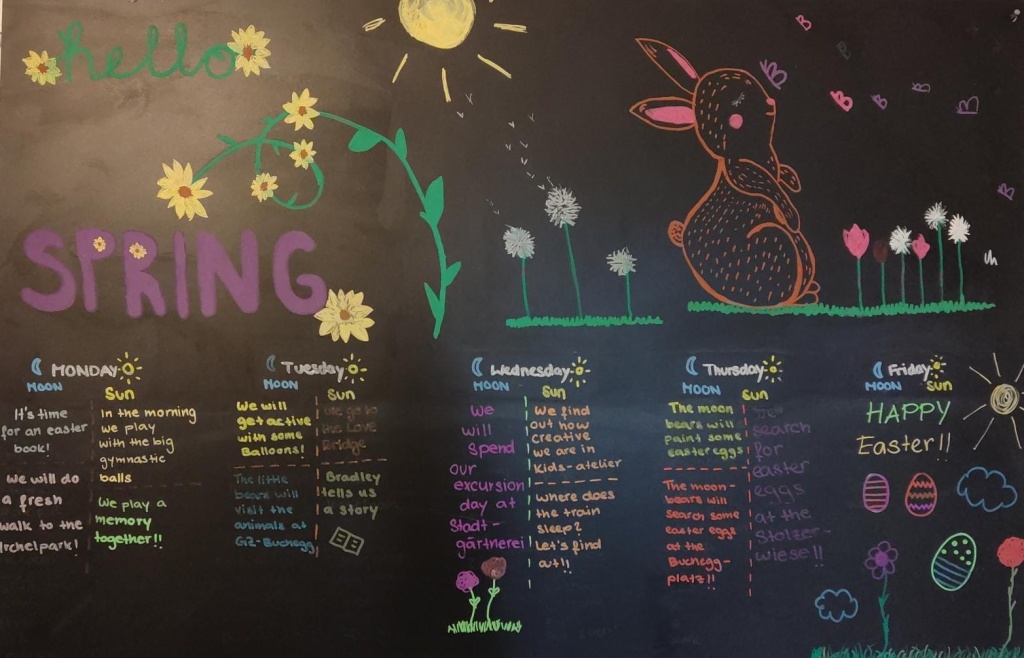 hello
SPRING
MONDAY
MOON
Sun
It's time
for an easter
book!
We will do
a fresh
walk to the
Irchelpark!
In the morning
we play
with the big
gymnastic
balls
We play a
memory
together!!
Tuesday
MOON
Sun
We will
get active
with some
Balloons!
The little
bears will
visit the
animals at
GZ-Buchegg
We go to
the Love
Bridge
Bradley
tells us
a story
Wednesday
MOON
Sun
We
will
spend
our
excursion
day at
Stadt-
gärtnerei
We find
out how
creative
we are in
Kids-atelier
Where does
the train
sleep?
Let's find
out!!
Thursday
MOON
Sun
The moon
bears will
paint some
easter eggs
The moon-
bears will
search some
easter eggs
at the
Buchegg-
platz!!
search
for
easter
eggs
at the
Stolzer-
wiese!!
Friday
MOON
Sun
HAPPY
Easter!!